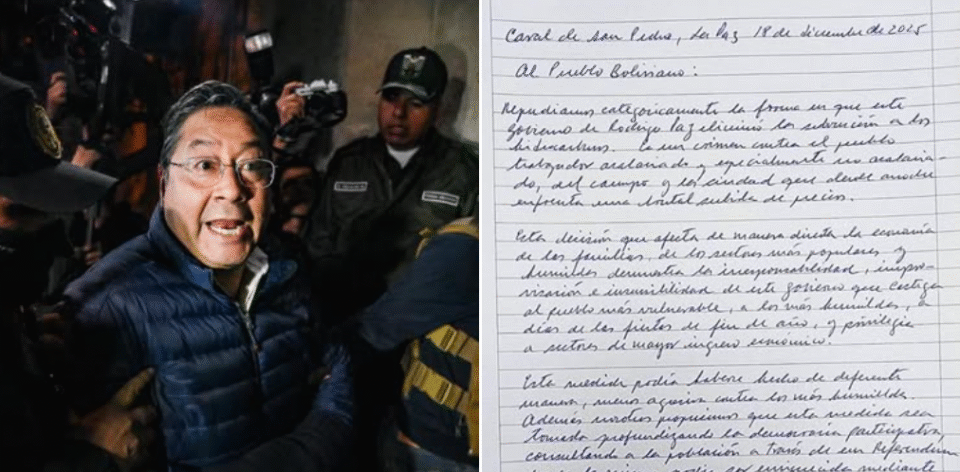 Canal de San Pedro, La Paz 18 de diciembre de 2025
Al Pueblo Boliviano:
Repudiamos categoricamente la forma en que este
Gobierno de Rodrigo Paz elimino la subvención a los
hidrocarburos. Es un crimen contra el pueblo
trabajador asalariado y especialmente no asalaria-
do, del campo y la ciudad que desde anoche
enfrenta una brutal subida de precios.
Esta decisión que afecta de manera directa la economía
de las familias, de los sectores más populares y
humildes demuestra la irresponsabilidad, impro-
visación e insensibilidad de este gobierno que castiga
al pueblo más vulnerable, a los más humildes, a
días de las fiestas de fin de año, y privilegia
a sectores de mayor ingreso económico.
Esta medida podía haberse hecho de diferente
manera, menos agresiva contra los más humildes.
Además nosotros propusimos que esta medida sea
tomada profundizando la democracia participativa,
consultando a la población a través de un Referendum
mediante